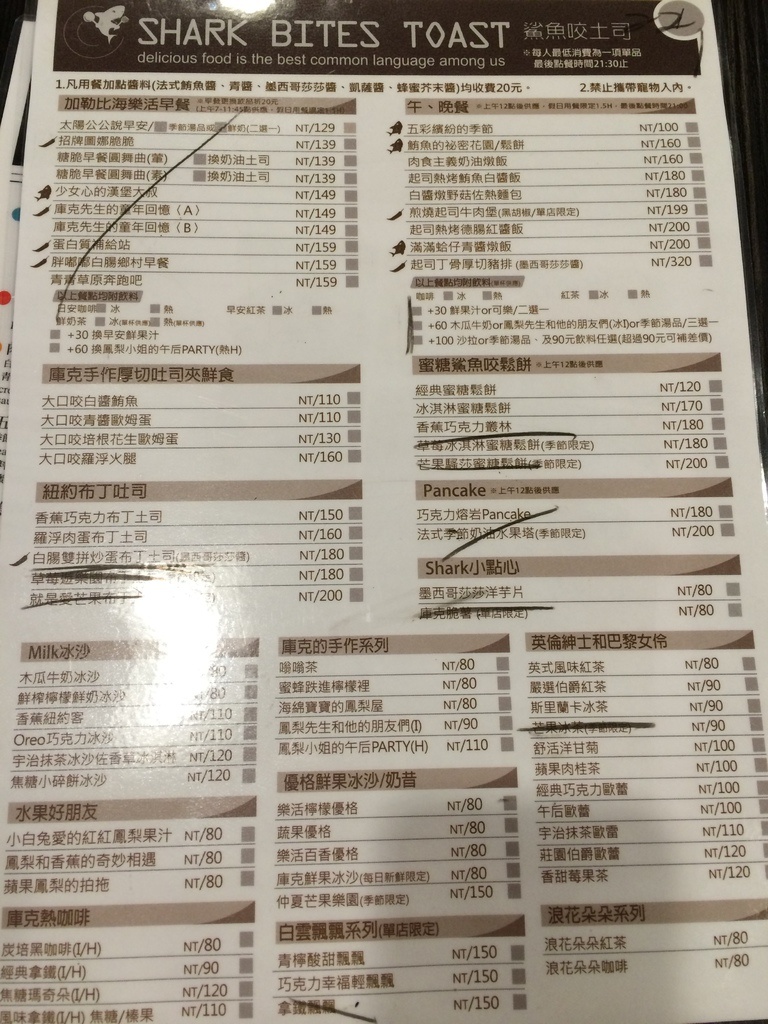 SHARK BITES TOAST 鯊魚咬土司
delicious food is the best common language among us
※每人最低消費為一項單品
最後點餐時間21:30止
1.凡用餐加點醬料(法式鮪魚醬、青醬、墨西哥莎莎醬、凱薩醬、蜂蜜芥末醬)均收費20元。 2.禁止攜帶寵物入內。
加勒比海樂活早餐
太陽公公說早安/季節湯品或鮮奶(二選一) NT/129
招牌圖娜脆脆 NT/139
糖脆早餐圓舞曲(葷) 換奶油土司 NT/139
糖脆早餐圓舞曲(素) 換奶油土司 NT/139
少女心的漢堡大叔 NT/149
庫克先生的童年回憶〈A〉 NT/149
庫克先生的童年回憶〈B〉 NT/149
蛋白質補給站 NT/159
胖嘟嘟白腸鄉村早餐 NT/159
青青草原奔跑吧 NT/159
以上餐點均附飲料
日安咖啡 冰 熱 早安紅茶 冰 熱
鮮奶茶 冰(單杯供應) 熱(單杯供應)
+30 換早安鮮果汁
+60 換鳳梨小姐的午后PARTY(熱H)
庫克手作厚切吐司夾鮮食
大口咬白醬鮪魚 NT/110
大口咬青醬歐姆蛋 NT/110
大口咬培根花生歐姆蛋 NT/130
大口咬羅浮火腿 NT/160
紐約布丁吐司
香蕉巧克力布丁土司 NT/150
羅浮肉蛋布丁土司 NT/160
白腸雙拼炒蛋布丁土司(墨西哥莎莎醬) NT/180
草莓遊樂園布丁 NT/180
就是愛芒果布丁 NT/200
午、晚餐 ※上午12點後供應，假日用餐限定1.5H，最後點餐時間21:00
五彩繽紛的季節 NT/100
鮪魚的祕密花園/鬆餅 NT/160
肉食主義奶油燉飯 NT/160
起司熱烤鮪魚白醬飯 NT/180
白醬燉野菇佐熱麵包 NT/180
煎燒起司牛肉堡(黑胡椒/單店限定) NT/199
起司熱烤德腸紅醬飯 NT/200
滿滿蛤仔青醬燉飯 NT/200
起司丁骨厚切豬排(墨西哥莎莎醬) NT/320
以上餐點均附飲料(單杯供應)
咖啡 冰 熱 紅茶 冰 熱
+30 鮮果汁or可樂/二選一
+60 木瓜牛奶or鳳梨先生和他的朋友們(冰I)or季節湯品/三選一
+100 沙拉or季節湯品、及90元飲料任選(超過90元可補差價)
蜜糖鯊魚咬鬆餅 ※上午12點後供應
經典蜜糖鬆餅 NT/120
冰淇淋蜜糖鬆餅 NT/170
香蕉巧克力叢林 NT/180
草莓冰淇淋蜜糖鬆餅(季節限定) NT/180
芒果騷莎蜜糖鬆餅(季節限定) NT/200
Pancake ※上午12點後供應
巧克力熔岩Pancake NT/180
法式季節奶油水果塔(季節限定) NT/200
Shark小點心
墨西哥莎莎洋芋片 NT/80
庫克脆薯(單店限定) NT/80
Milk冰沙
木瓜牛奶冰沙
鮮榨檸檬鮮奶冰沙
香蕉紐約客 NT/110
Oreo巧克力冰沙 NT/110
宇治抹茶冰沙佐香草冰淇淋 NT/120
焦糖小碎餅冰沙 NT/120
水果好朋友
小白兔愛的紅紅鳳梨果汁 NT/80
鳳梨和香蕉的奇妙相遇 NT/80
蘋果鳳梨的拍拖 NT/80
庫克熱咖啡
炭培黑咖啡(I/H) NT/80
經典拿鐵(I/H) NT/90
焦糖瑪奇朵(I/H) NT/120
風味拿鐵(I/H) 焦糖/榛果 NT/110
庫克的手作系列
嗡嗡茶 NT/80
蜜蜂跌進檸檬裡 NT/80
海綿寶寶的鳳梨屋 NT/80
鳳梨先生和他的朋友們(I) NT/90
鳳梨小姐的午后PARTY(H) NT/110
優格鮮果冰沙/奶昔
樂活檸檬優格 NT/80
蔬果優格 NT/80
樂活百香優格 NT/80
庫克鮮果冰沙(每日新鮮限定) NT/80
仲夏芒果樂園(季節限定) NT/150
白雲飄飄系列(單店限定)
青檸酸甜飄飄 NT/150
巧克力幸福輕飄飄 NT/150
拿鐵飄飄 NT/150
英倫紳士和巴黎女伶
英式風味紅茶 NT/80
嚴選伯爵紅茶 NT/90
斯里蘭卡冰茶 NT/90
芒果冰茶(季節限定) NT/90
舒活洋甘菊 NT/100
蘋果肉桂茶 NT/100
經典巧克力歐蕾 NT/100
午后歐蕾 NT/100
宇治抹茶歐雷 NT/110
莊園伯爵歐蕾 NT/120
香甜莓果茶 NT/120
浪花朵朵系列
浪花朵朵紅茶 NT/80
浪花朵朵咖啡 NT/80